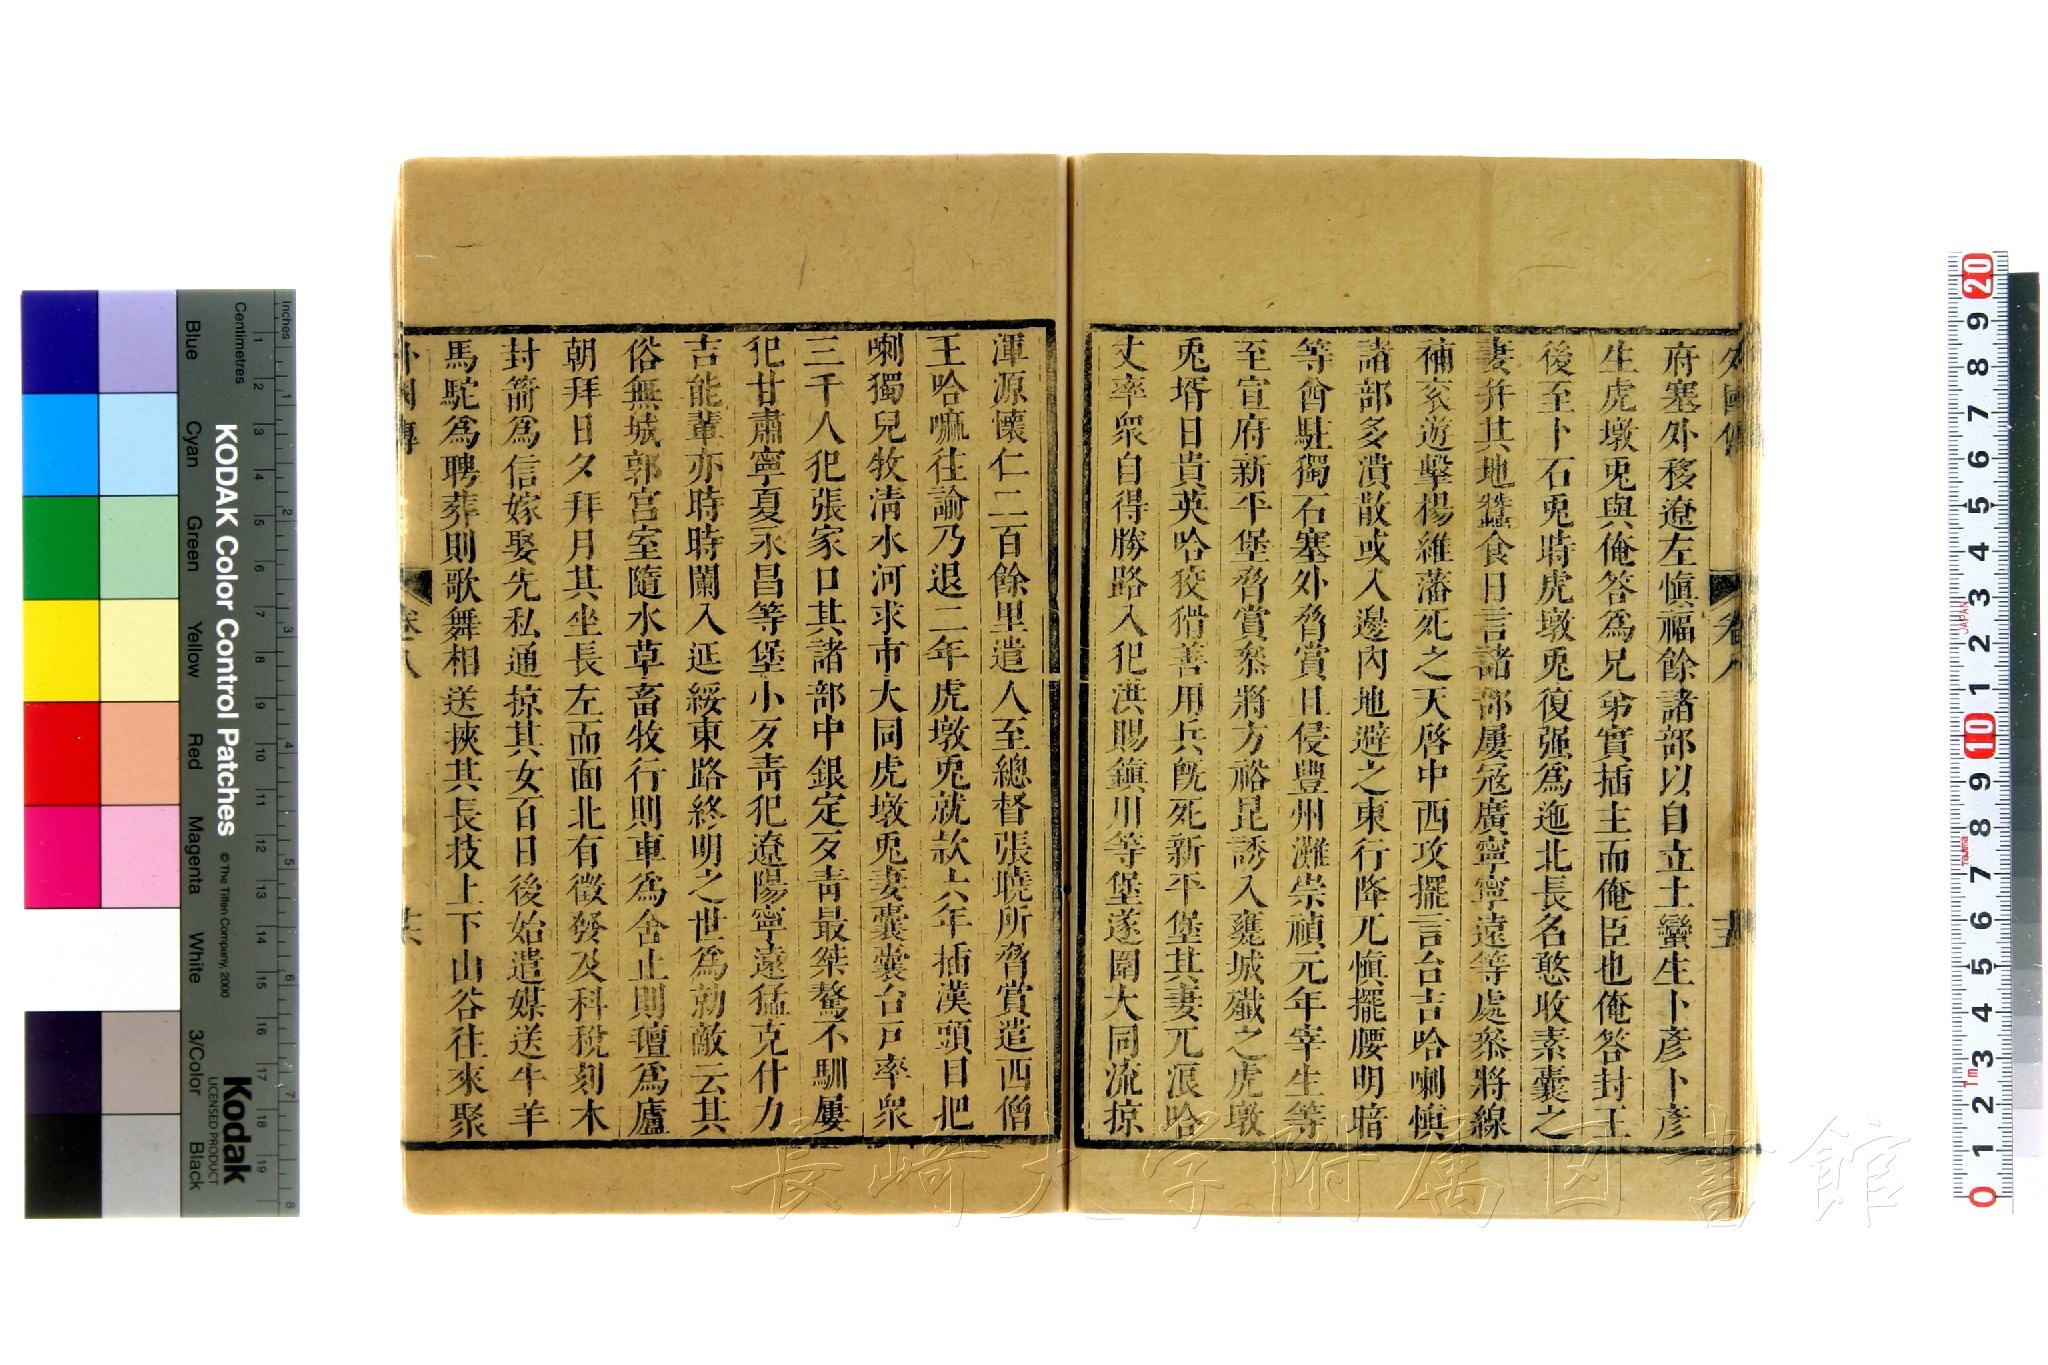 外國傳 卷八 五
府塞外移遼左愼福餘諸部以自立土蠻生卜彥卜彥
生虎墩兎與俺答爲兄弟實插主而俺臣也俺答封王
後至卜石兎時虎墩兎復强爲迤北長名憨收素囊之
妻并其地蠶食日言諸部屢寇廣寧寧遠等處叅將線
補衮遊擊楊維藩死之天啓中西攻擺言台吉哈喇愼
諸部多潰散或入邊內地避之東行降兀愼擺腰明暗
等酋駐獨石塞外脅賞日侵豐州灘崇禎元年宰生等
至宣府新平堡脅賞叅將方裕昆誘入甕城殲之虎墩
兎壻日貴英哈狡猾善用兵旣死新平堡其妻兀浪哈
丈率衆自得勝路入犯洪賜鎭川等堡遂圍大同流掠
渾源懷仁二百餘里遣人至總督張曉所脅賞遣西僧
王哈嘛往諭乃退二年虎墩兎就款六年插漢頭日把
喇獨兒牧淸水河求市大同虎墩兎妻囊囊台戸率衆
三千人犯張家口其諸部中銀定歹靑最桀驁不馴屢
犯甘肅寧夏永昌等堡小歹靑犯遼陽寧遠猛克什力
吉能輩亦時時闌入延綏東路終明之世爲勍敵云其
俗無城郭宮室隨水草畜牧行則車爲舍止則氊爲廬
朝拜日夕拜月其坐長左而面北有徵發及科稅刻木
封箭爲信嫁娶先私通掠其女百日後始遣媒送牛羊
馬駝爲聘葬則歌舞相送挾其長技上下山谷往來聚
外國傳 卷八
KODAK Color Control Patches
© The Tiffen Company, 2000
Kodak
LICENSED PRODUCT
Inches
Centimetres
Blue
Cyan
Green
Yellow
Red
Magenta
White
3/Color
Black
1 2 3 4 5 6 7 8 9 10 11 12 13 14 15 16 17 18 19
1 2 3 4 5 6 7 8
20 9 8 7 6 5 4 3 2 1 10 9 8 7 6 5 4 3 2 1 0
JAPAN
Tajima
1m
長崎大学附属図書館